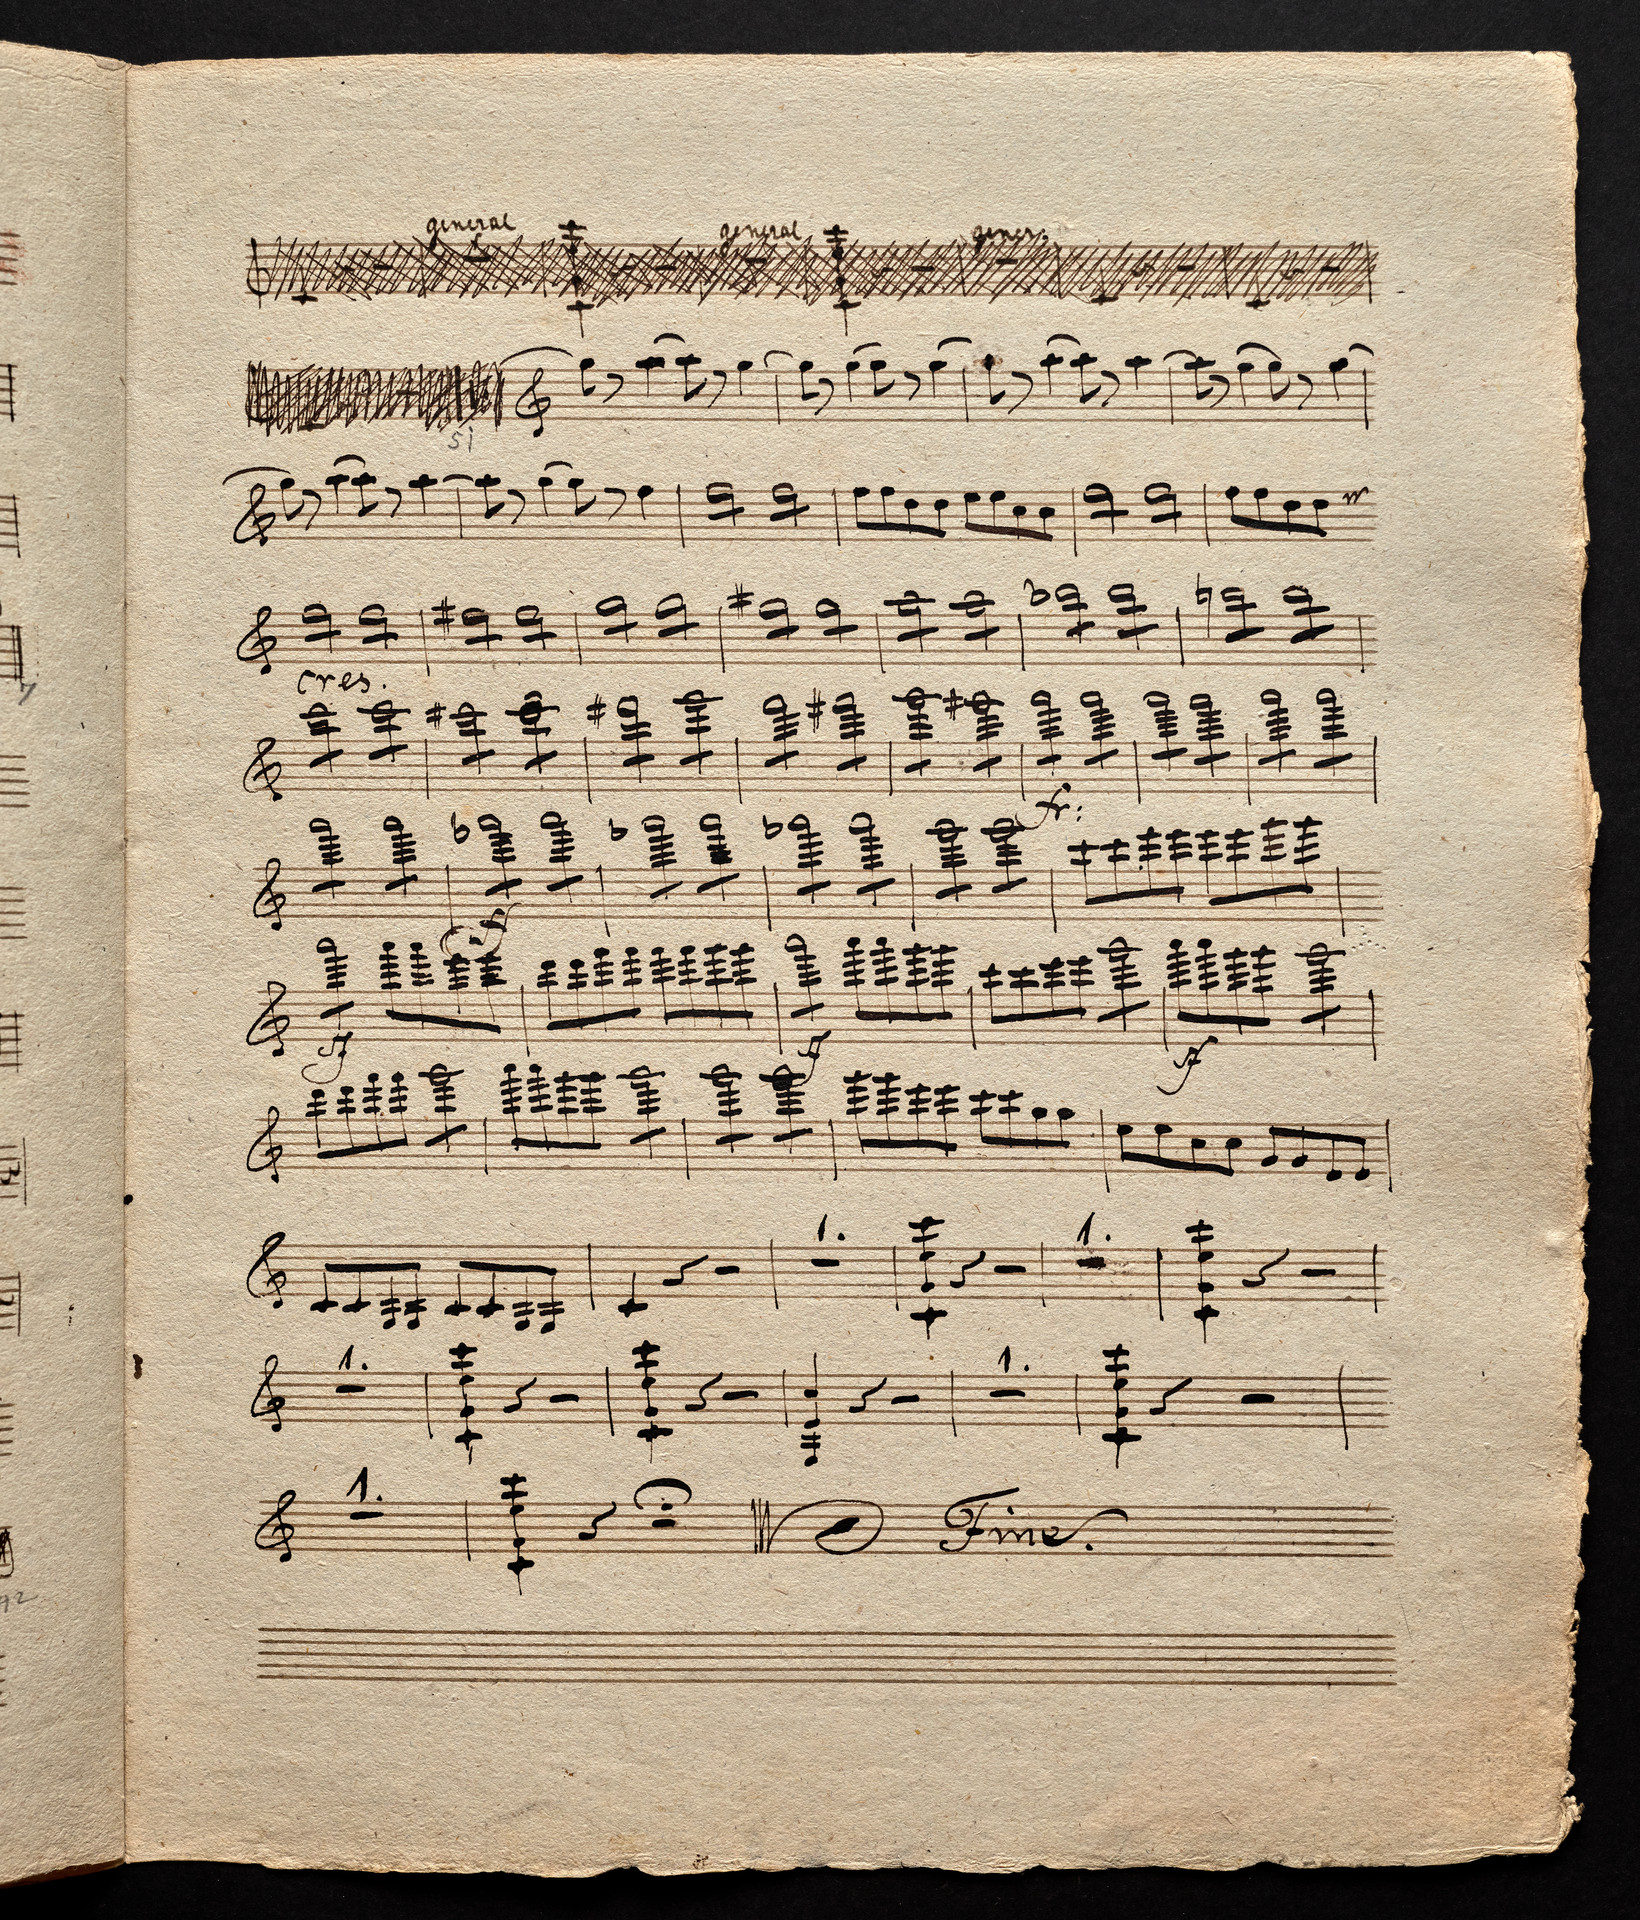 general general gener:
si
cres.
fr:
sf
sf sf sf
1. 1.
1. 1.
1. Fine.